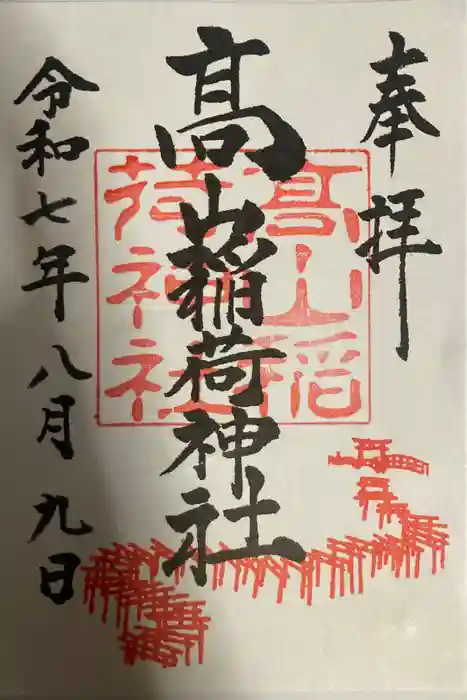 奉拝
高山稲荷神社
高山稲
荷神社
令和七年八月九日